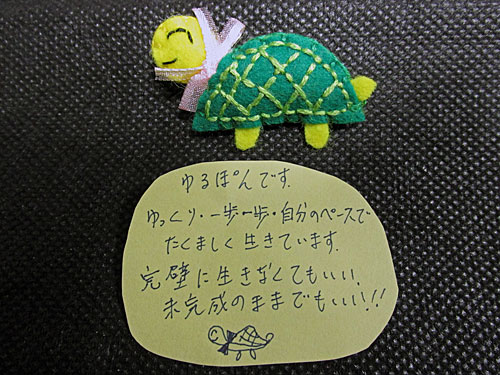 ゆるぽんです.
ゆっくり・一歩一歩・自分のペースで
たくましく生きています.
完璧に生きなくてもいい.
未完成のままでもいい!!!